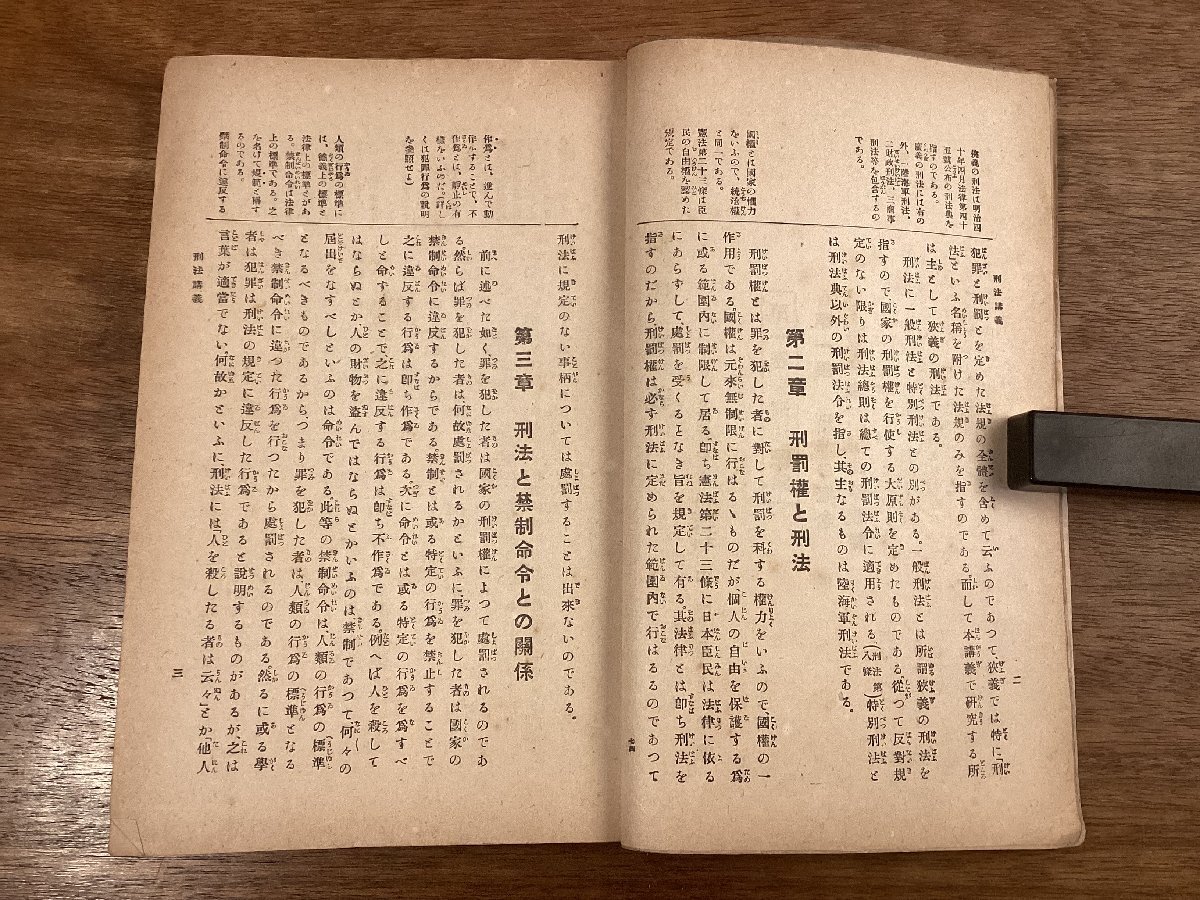 刑法講義
二
狹義の刑法は明治四
十年四月法律第四十
五號公布の刑法典を
指すのである。
廣義の刑法には右の
外、一陸海軍刑法、
二財政刑法、三商事
刑法等を包含するの
である。
國權とは國家の權力
をいふので、統治權
と同一である。
憲法第二十三條は臣
民の自由權を認めた
規定である。
犯罪と刑罰とを定めた法規の全體を含めて云ふのであつて狹義では特に「刑
法」といふ名稱を附けた法規のみを指すのである而して本講義で硏究する所
は主として狹義の刑法である。
刑法に一般刑法と特別刑法との別がある。一般刑法とは所謂狹義の刑法を
指すので國家の刑罰權を行使する大原則を定めたものである、從つて反對規
定のない限りは刑法總則は總ての刑罰法令に適用される(刑法第八條)特別刑法と
は刑法典以外の刑罰法令を指し其主なるものは陸海軍刑法である。
第二章 刑罰權と刑法
刑罰權とは罪を犯した者に對して刑罰を科する權力をいふので、國權の一
作用である。國權は元來無制限に行はるゝものだが個人の自由を保護する爲
に或る範圍內に制限して居る。卽ち憲法第二十三條に日本臣民は法律に依る
にあらずして處罰を受くることなき旨を規定して有る。其法律とは卽ち刑法を
指すのだから刑罰權は必ず刑法に定められた範圍內で行はるるのであつて
七四
作爲とは、進んで動
作をすることで、不
作爲とは、靜止の有
樣をいふのだ。(詳し
くは犯罪行爲の說明
を參照せよ)
人類の行爲の標準に
は、德義上の標準と
法律上の標準とがあ
る。禁制命令は法律
上の標準である。之
を名けて規範と稱す
るのである。
禁制命令に違反する
刑法に規定のない事柄については處罰することは出來ないのである。
第三章 刑法と禁制命令との關係
前に述べた如く罪を犯した者は國家の刑罰權によつて處罰されるのであ
る、然らば罪を犯した者は、何故處罰されるかといふに罪を犯した者は國家の
禁制命令に違反するからである禁制とは或る特定の行爲を禁止することで
之に違反する行爲は卽ち作爲である。次に命令とは或る特定の行爲を爲すべ
しと命ずることで之に違反する行爲は卽ち不作爲である例へば人を殺して
はならぬとか人の財物を盜んではならぬとかいふのは禁制であつて何々の
屆出をなすべしといふのは命令である此等の禁制命令は、人類の行爲の標準
となるべきものであるから、つまり罪を犯した者は人類の行爲の標準となる
べき禁制命令に違つた行爲を行つたから處罰されるのである。然るに或る學
者は犯罪は刑法の規定に違反した行爲であると說明するものがあるが之は
言葉が適當でない何故かといふに刑法には「人を殺したる者は云々」とか他人
刑法講義
三